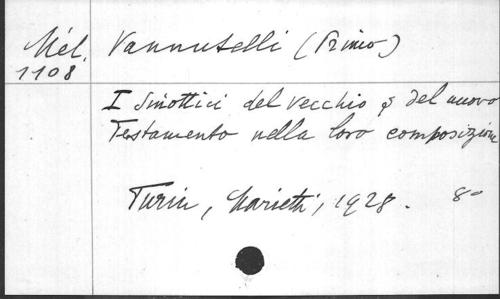 Mél. Vannutelli (Primo)
1108
I Sinottici del vecchio e del nuovo
Testamento nella loro composizione
Turin, Marietti, 1928. 8°